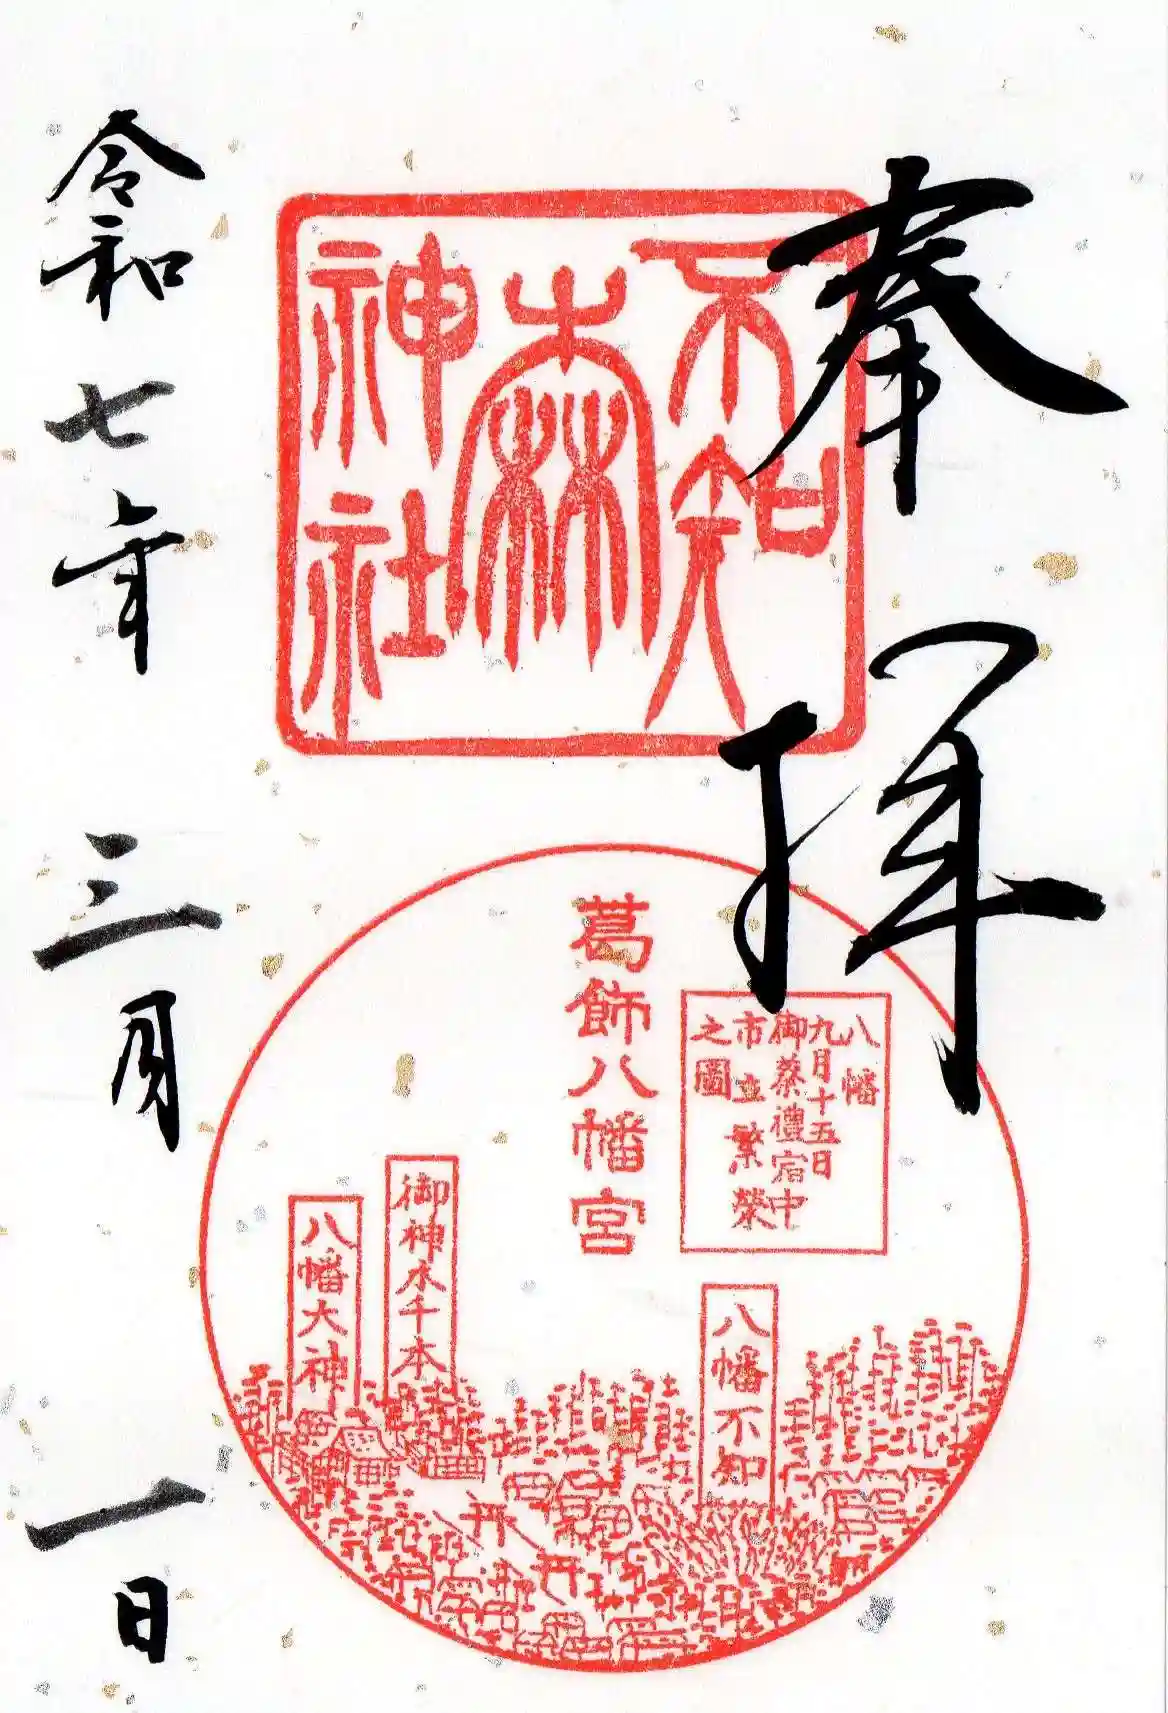 奉拝
不知
森
神社
葛飾八幡宮
八幡
九月十五日
御祭禮宿中
市立繁榮
之圖
八幡不知
御神木千本
八幡大神
令和七年三月一日